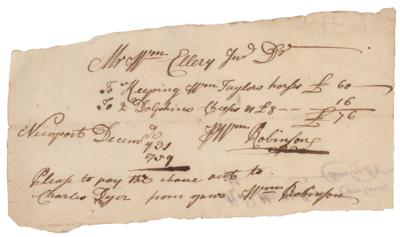 Mr Wm Ellery Junr Dr
To Keeping Wm Taylors horses £ 60
To 2 Dolphins Cheeps at £8 — 16
£ 76
Newport Decem
1759
Wm Robinson
Please to pay the above acct to
Charles Dyer from yours Wm Robinson